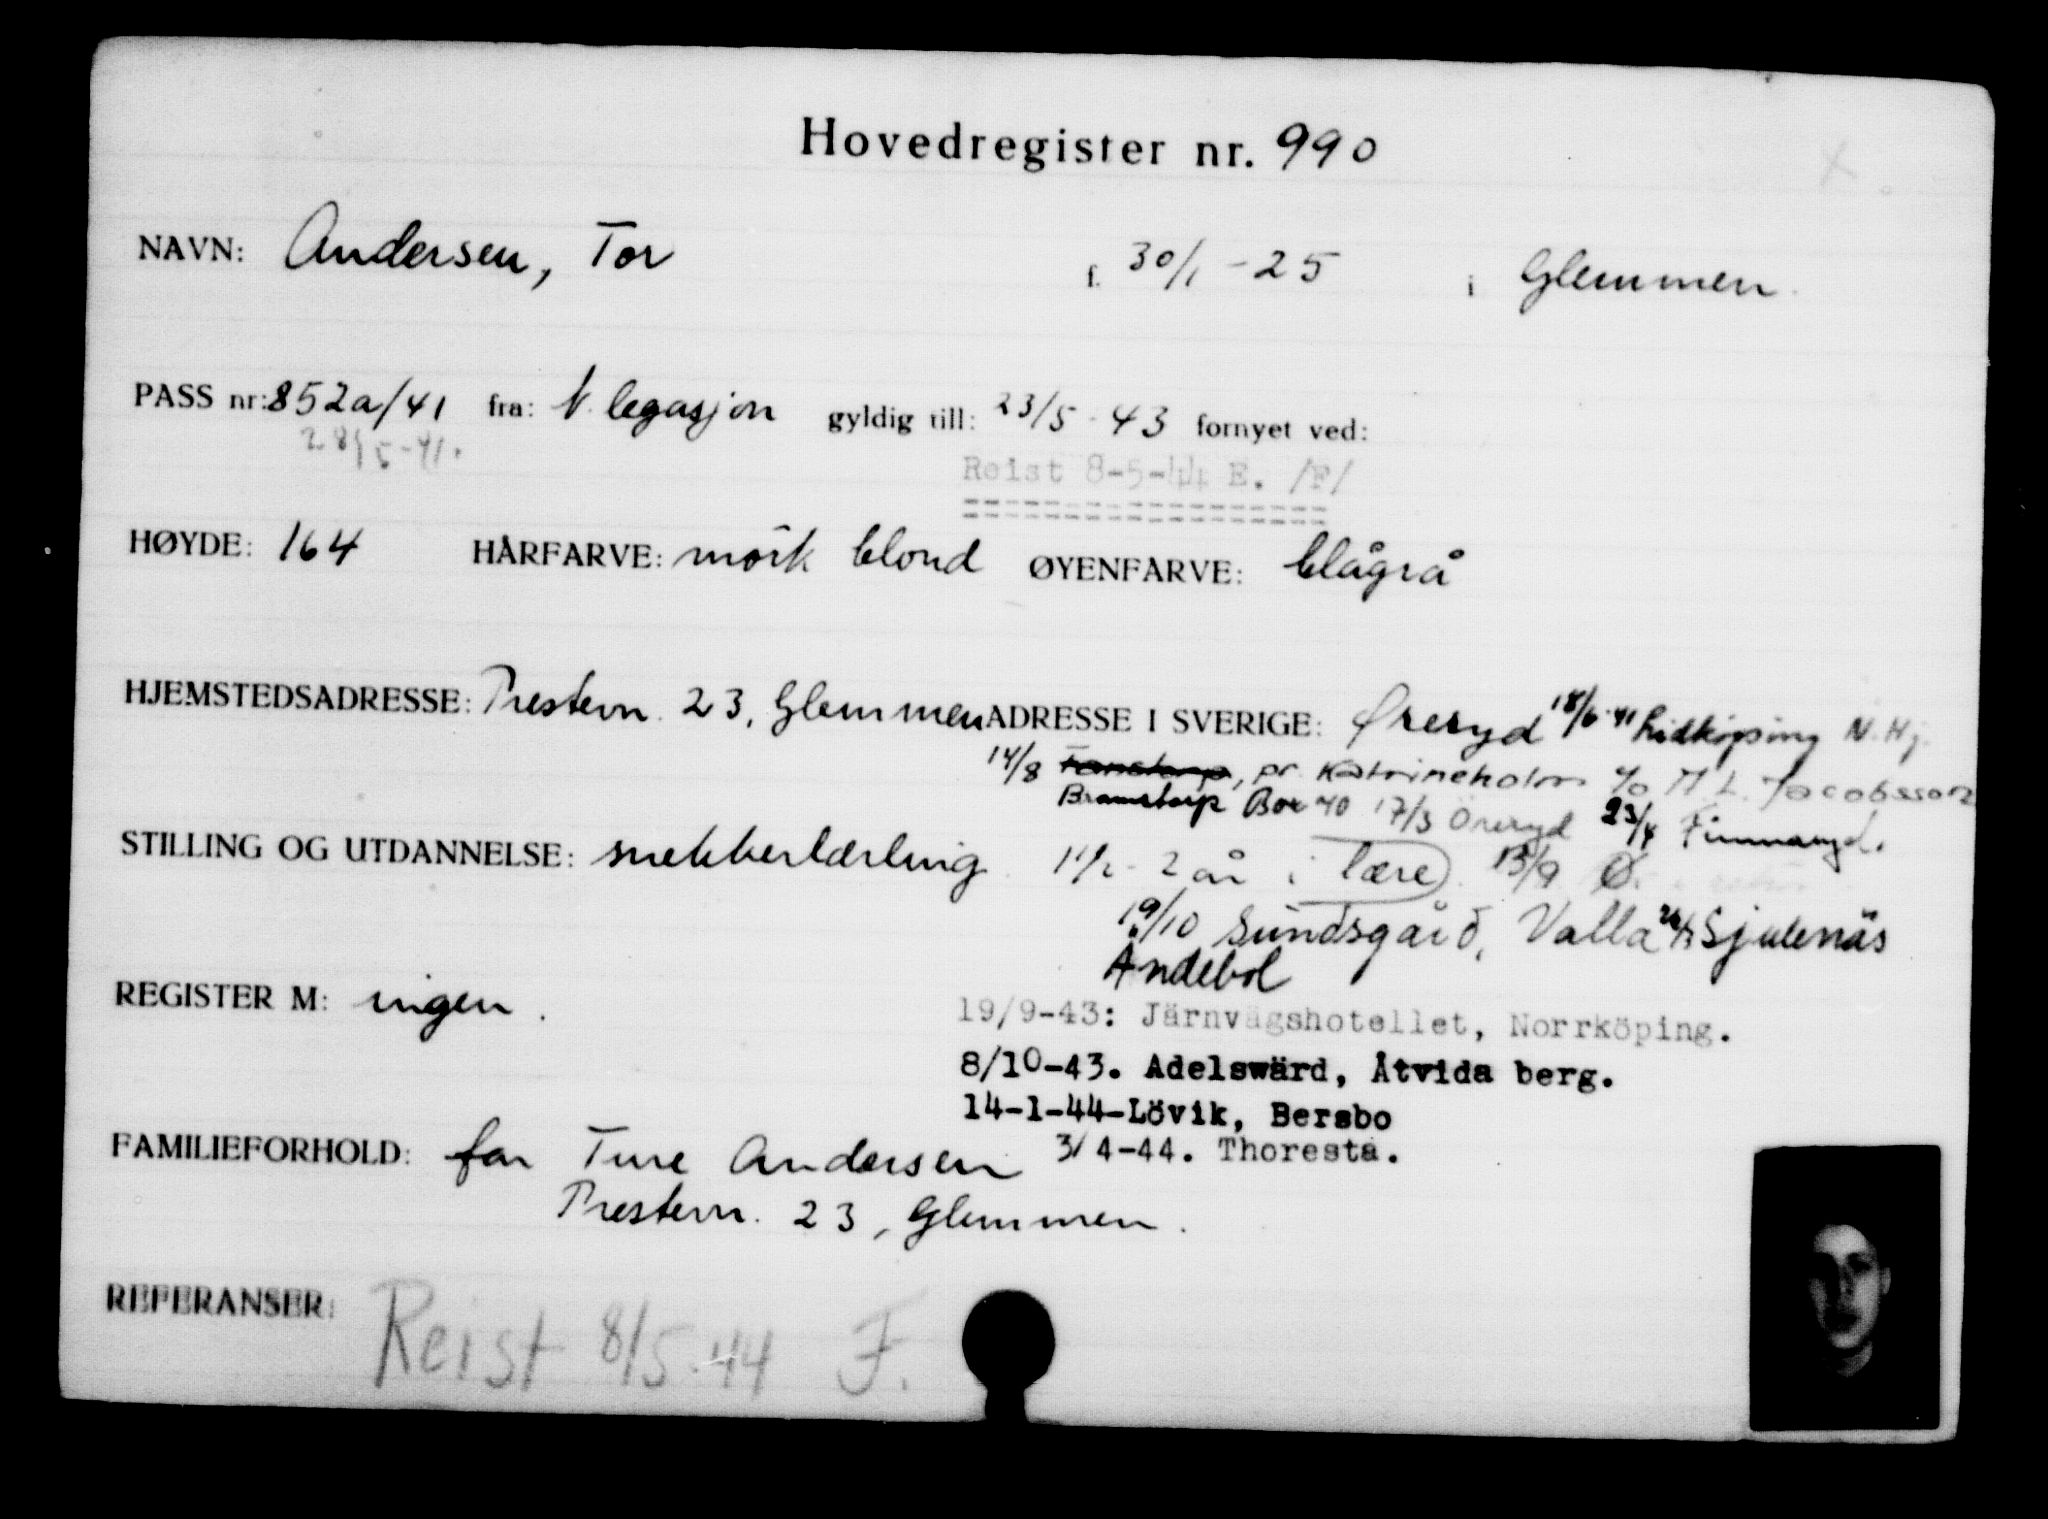 Hovedregister nr. 990
NAVN: Andersen, Tor f. 30/1 - 25 i Glemmen.
PASS nr: 852a/41 fra: N. legasjon gyldig till: 23/5 - 43 fornyet ved:
28/5-41.
Reist 8-5-44 E. /F/
==================
HØYDE: 164 HÅRFARVE: mörk blond ØYENFARVE: blågrå
HJEMSTEDSADRESSE: Prestevn. 23, Glemmen ADRESSE I SVERIGE: Øreryd 18/6-41 Lidköping N. Hj.
14/8 , pr. Katrineholm c/o M L. Jacobsson
Bramstorp Box 40 17/3 Öreryd 23/4 Finnanyd.
STILLING OG UTDANNELSE: snekkerlærling. 1 1/2 - 2 år i lære. 13/9 Ø.
19/10 Sundsgård, Valla Sjulenäs
Andebol
REGISTER M: ingen.
19/9-43: Järnvägshotellet, Norrköping.
8/10-43. Adelswärd, Åtvida berg.
14-1-44-Lövik, Bersbo
3/4-44. Thoresta.
FAMILIEFORHOLD: far Ture Andersen
Prestevn. 23, Glemmen.
REFERANSER:
Reist 8/5-44 F.